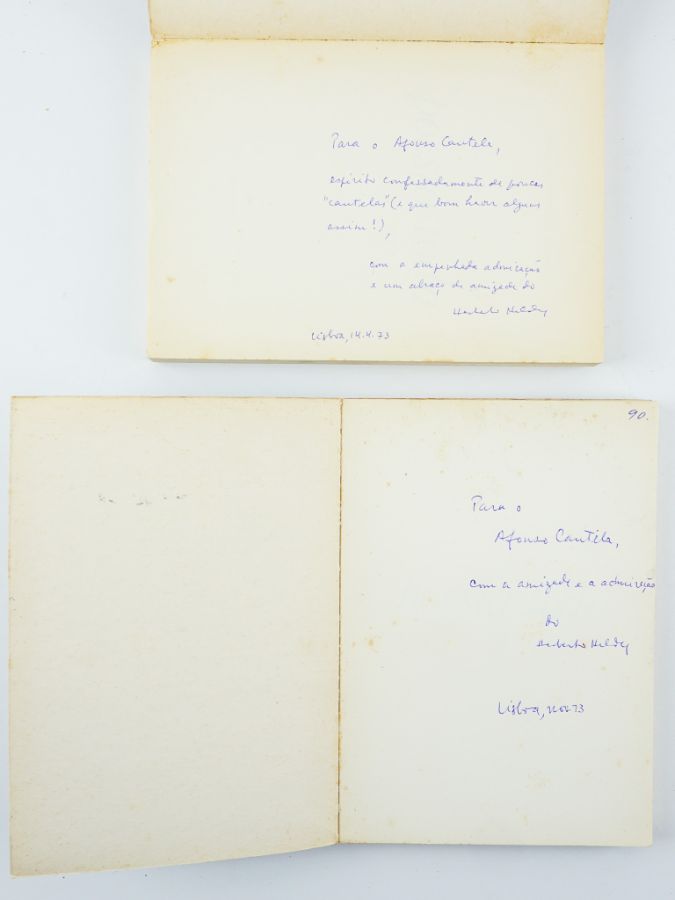 Para o Afonso Cautela,
espírito confessadamente de poucas
"cautelas" (e que bom haver alguns
assim!),
com a empenhada admiração
e um abraço de amizade do
Herberto Helder
Lisboa, 14.4.73
90.
Para o
Afonso Cautela,
com a amizade e a admiração
do
Herberto Helder
Lisboa, nov 73